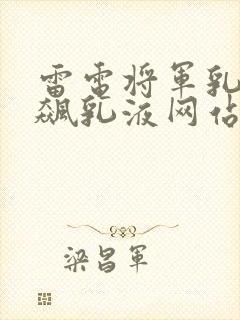 雷电将军乳
飙乳液网站
梁昌军